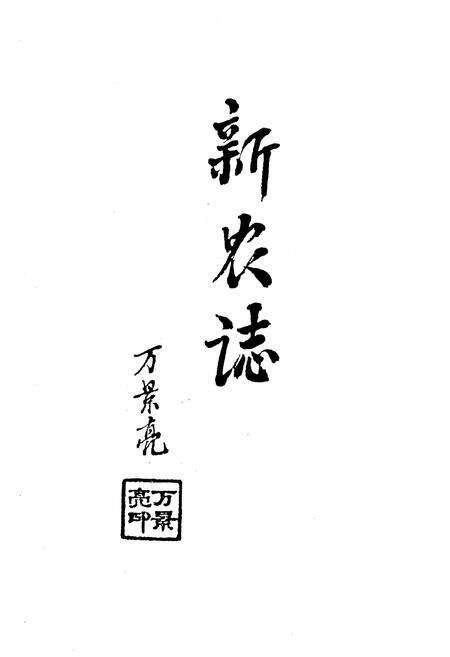 新农誌
万景亮
万景
亮印